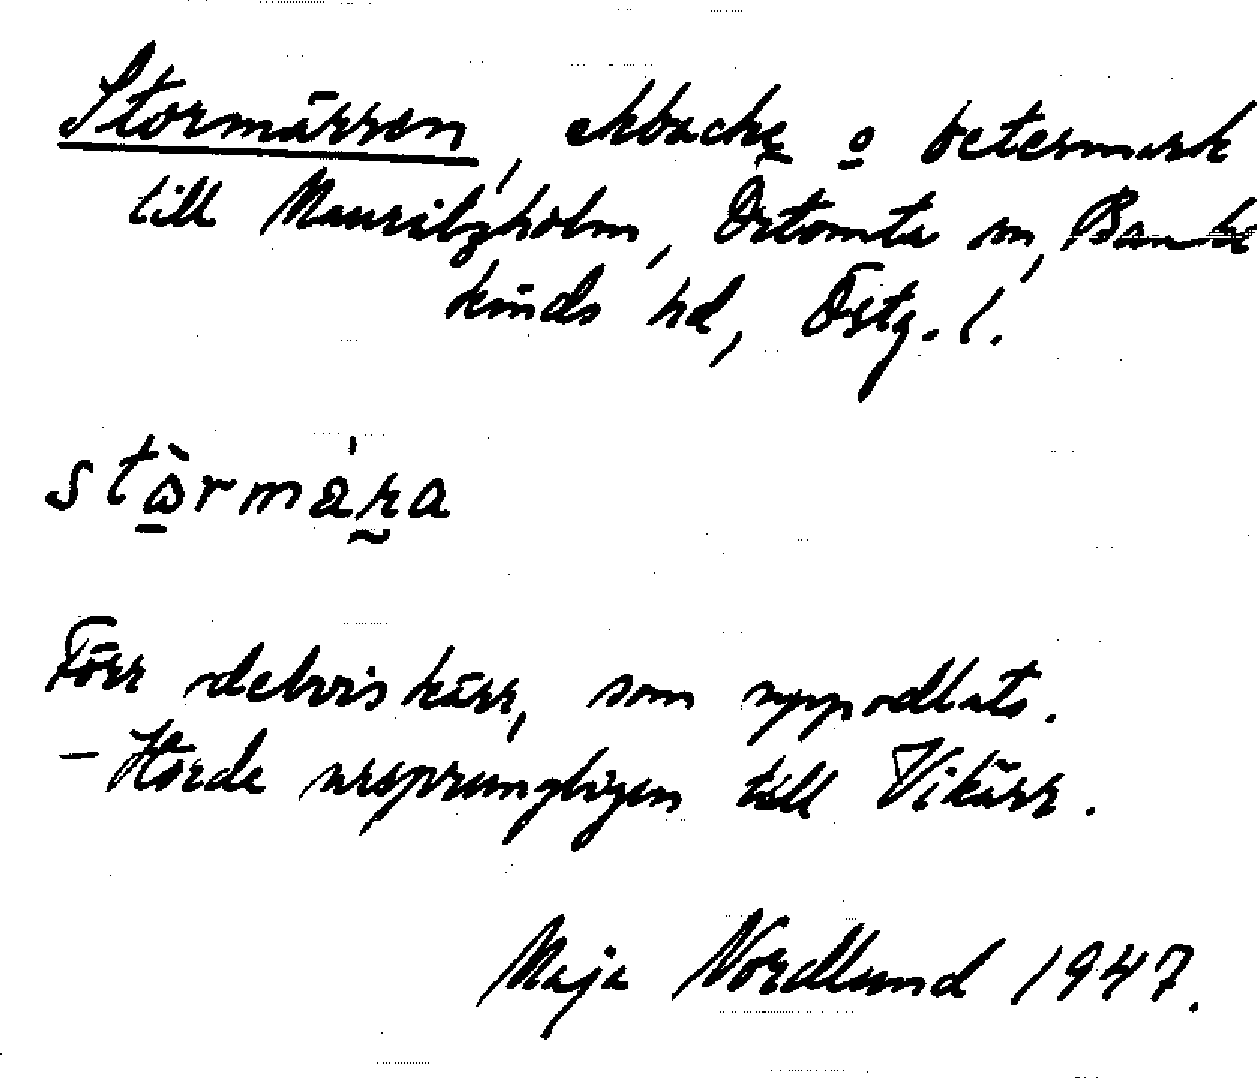 Stormärren, ekbacke o betesmark
till Mauritzholm, Östomta sn, Bank
kinds hd, Östg. l.
Förr delvis kärr, som uppodlats.
– Hörde ursprungligen till Vikärr.
Maja Nordlund 1947.